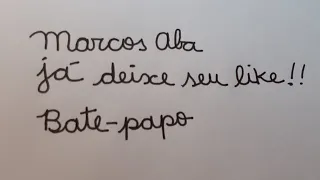 Marcos Aba
já deixe seu like!!
Bate-papo